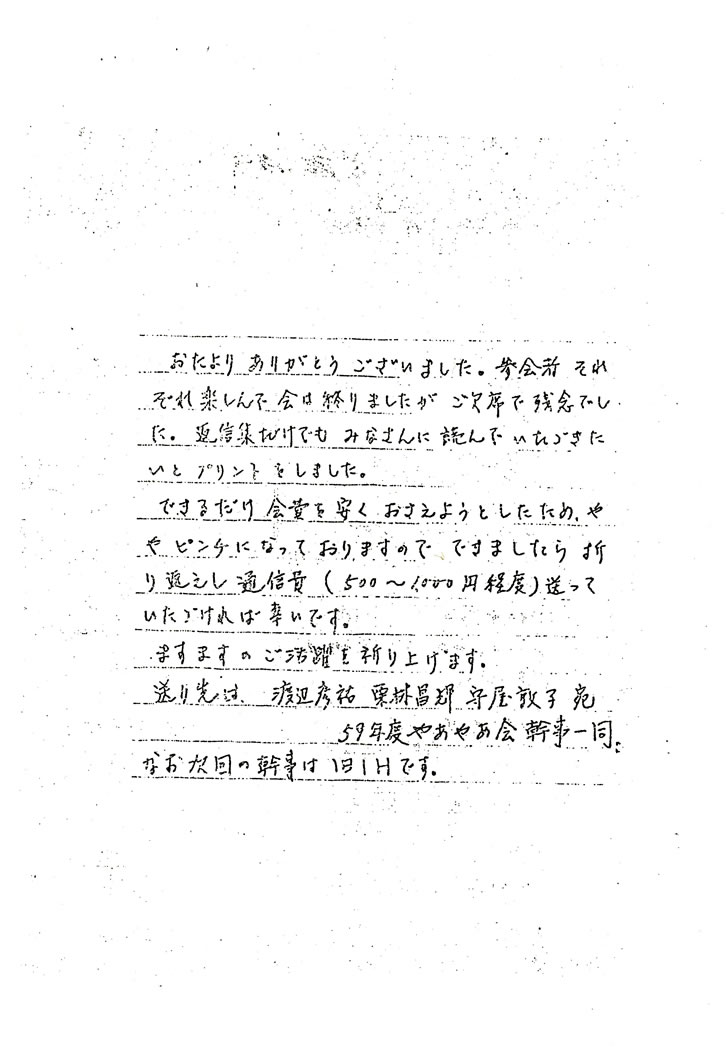 おたより ありがとう ございました。参会者 それ
ぞれ楽しんで 会は終りましたが ご欠席で残念でし
た。返信集だけでも みなさんに 読んで いただきた
いと プリント をしました。
できるだけ 会費を安く おさえようとしたため、や
や ピンチになって おりますので できましたら 折
り返えし 通信費 (500〜1,000円程度)送って
いただければ幸いです。
ますますの ご活躍を祈り上げます。
送り先は 渡辺彦祐 栗林昌輝 守屋敦子 宛
59年度やあやあ会 幹事一同
なお次回の幹事は 旧1Hです。